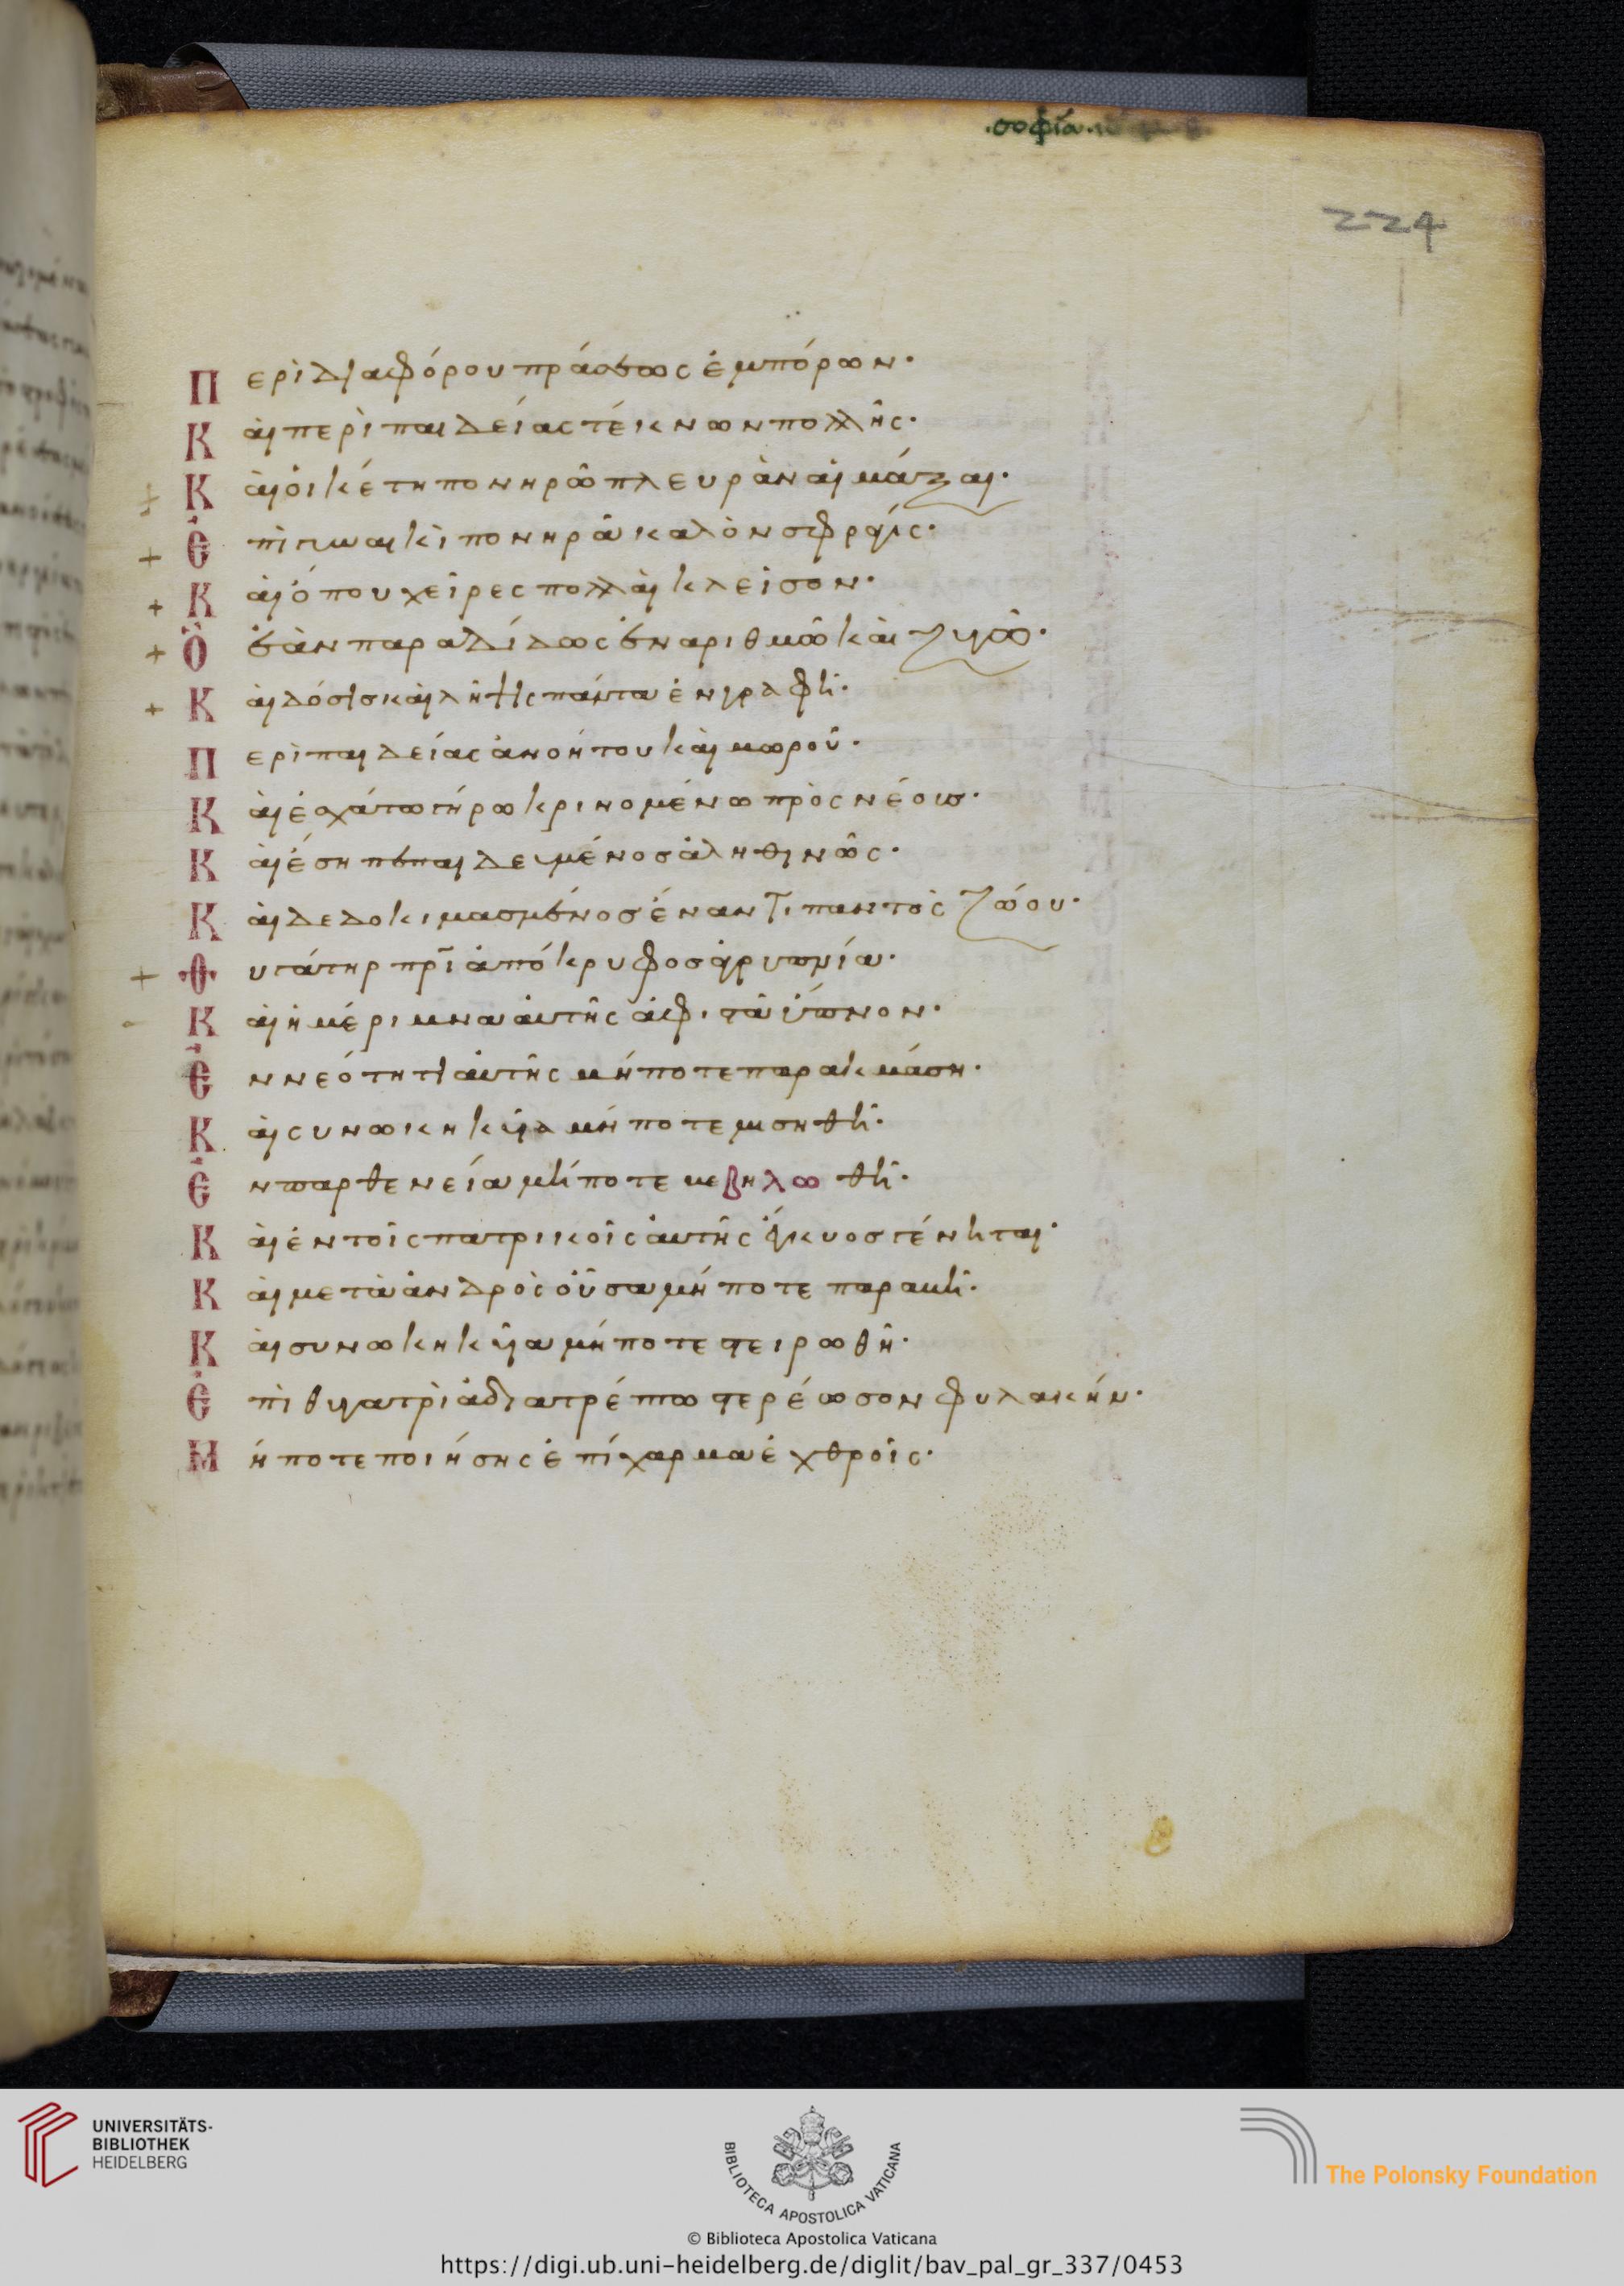 ·σοφία·
224
Περὶ διαφόρου πράσεως ἐμπόρων·
Καὶ περὶ παιδείας τέκνων πολλῆς·
Καὶ οἰκέτη πονηρῶ πλευρὰν αἱμάξαι·
Ἐπὶ γυναικὶ πονηρᾶ καλὸν σφραγίς·
Καὶ ὅπου χεῖρες πολλαὶ κλεῖσον·
Ὃ ἐὰν παραδίδως ἐν ἀριθμῶ καὶ ζυγῶ·
Καὶ δόσις καὶ λῆψις πάντα ἐν γραφῆ·
Περὶ παιδείας ἀνοήτου καὶ μωροῦ·
Καὶ ἐσχάτω γήρω κρινομένω πρὸς νέους·
Καὶ ἔση πεπαιδευμένος ἀληθινῶς·
Καὶ δεδοκιμασμένος ἔναντι παντὸς ζώου·
Θυγάτηρ πρὶ ἀπόκρυφος ἀγρυπνία·
Καὶ ἡ μέριμνα αὐτῆς ἀφιστᾶ ὕπνον·
Ἐν νεότητι αὐτῆς μήποτε παρακμάση·
Καὶ συνωκηκυῖα μήποτε μισηθῆ·
Ἐν παρθενεία μήποτε βεβηλωθῆ·
Καὶ ἐν τοῖς πατρικοῖς αὐτῆς ἔγκυος γένηται·
Καὶ μετὰ ἀνδρὸς οὖσα μήποτε παραβῆ·
Καὶ συνωκηκυῖα μήποτε στειρωθῆ·
Ἐπὶ θυγατρὶ ἀδιατρέπτω στερέωσον φυλακήν·
Μήποτε ποιήσης ἐπίχαρμα ἐχθροῖς·
UNIVERSITÄTS-
BIBLIOTHEK
HEIDELBERG
BIBLIOTECA APOSTOLICA VATICANA
The Polonsky Foundation
© Biblioteca Apostolica Vaticana
https://digi.ub.uni-heidelberg.de/diglit/bav_pal_gr_337/0453